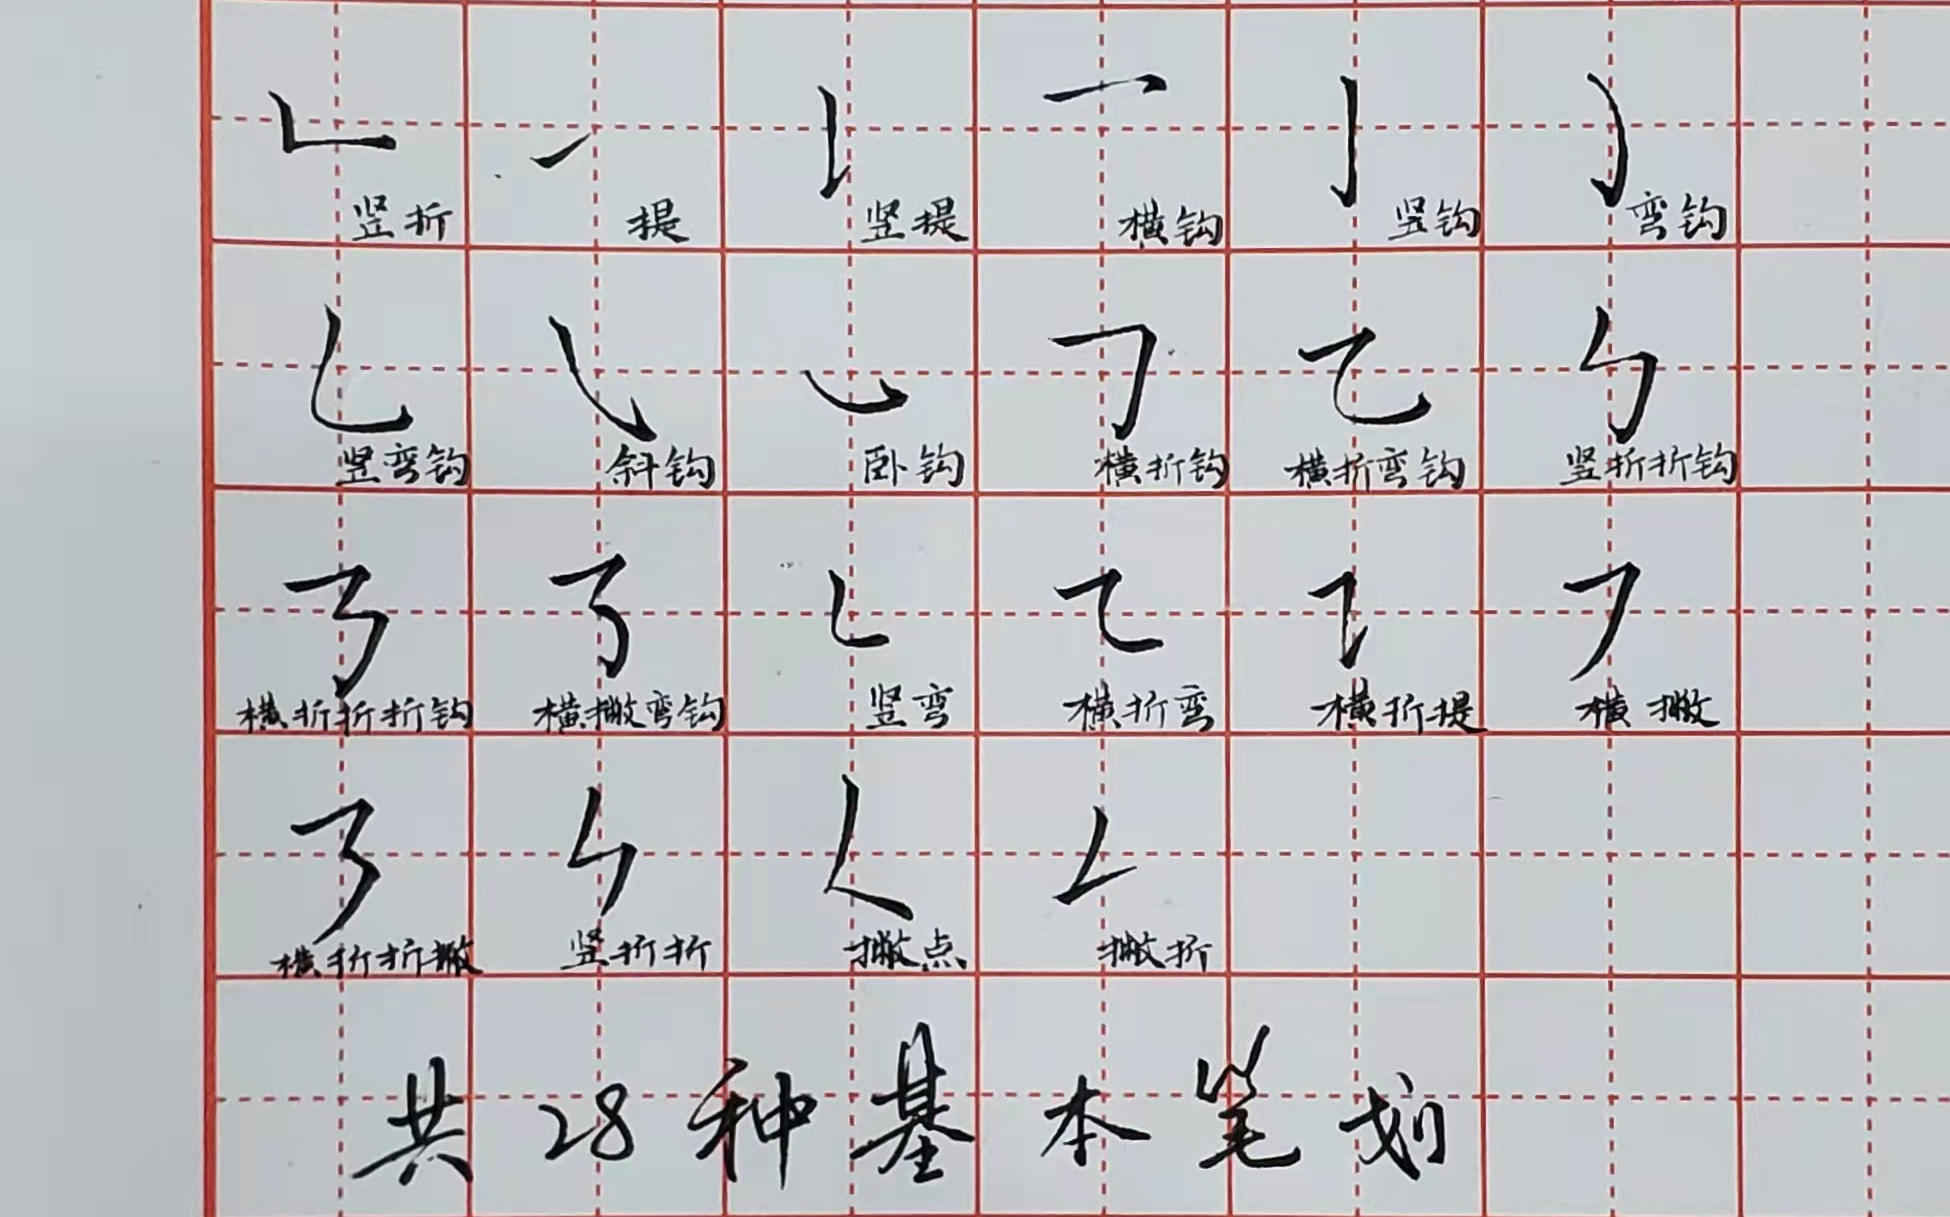 竖折 提 竖提 横钩 竖钩 弯钩
竖弯钩 斜钩 卧钩 横折钩 横折弯钩 竖折折钩
横折折折钩 横撇弯钩 竖弯 横折弯 横折提 横撇
横折折撇 竖折折 撇点 撇折
共28种基本笔划